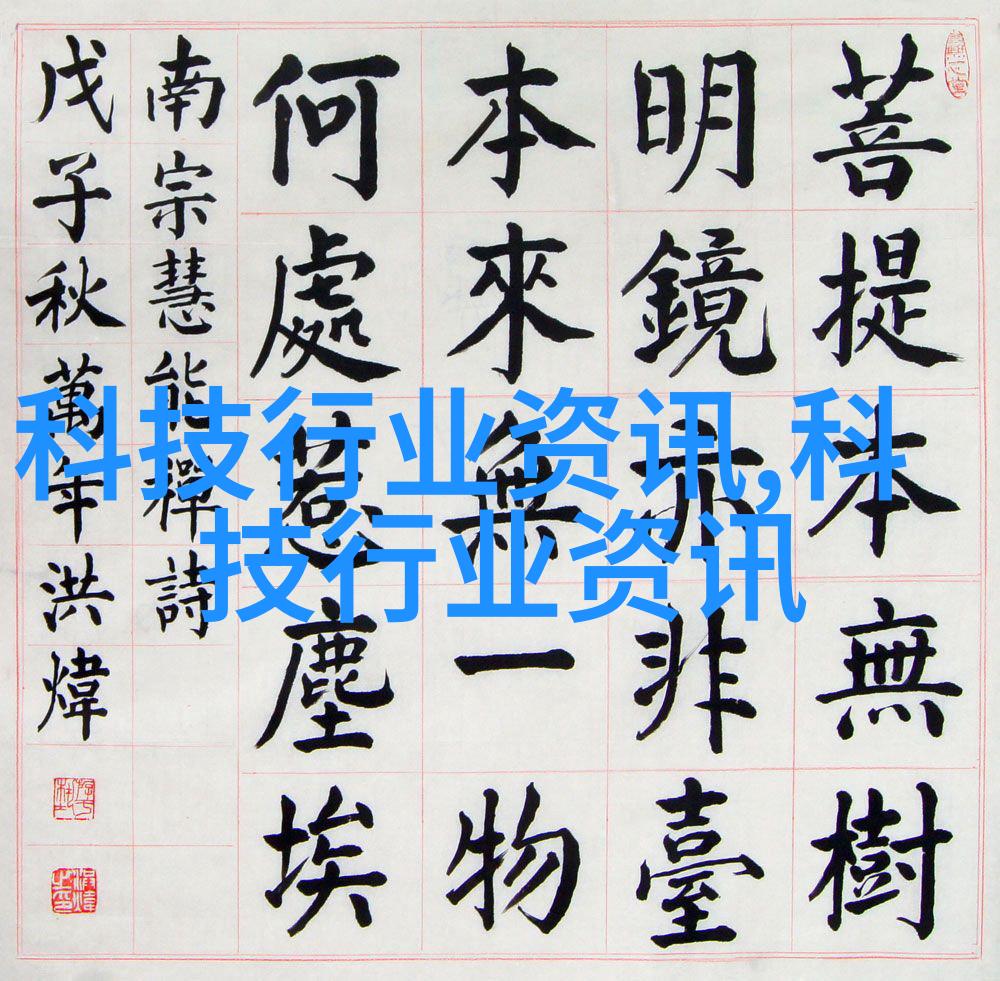 菩提本無樹
明鏡亦非臺
本來無一物
何處惹塵埃
南宗慧能禪詩
戊子秋萬年洪煒
科技行业资讯,科
技行业资讯